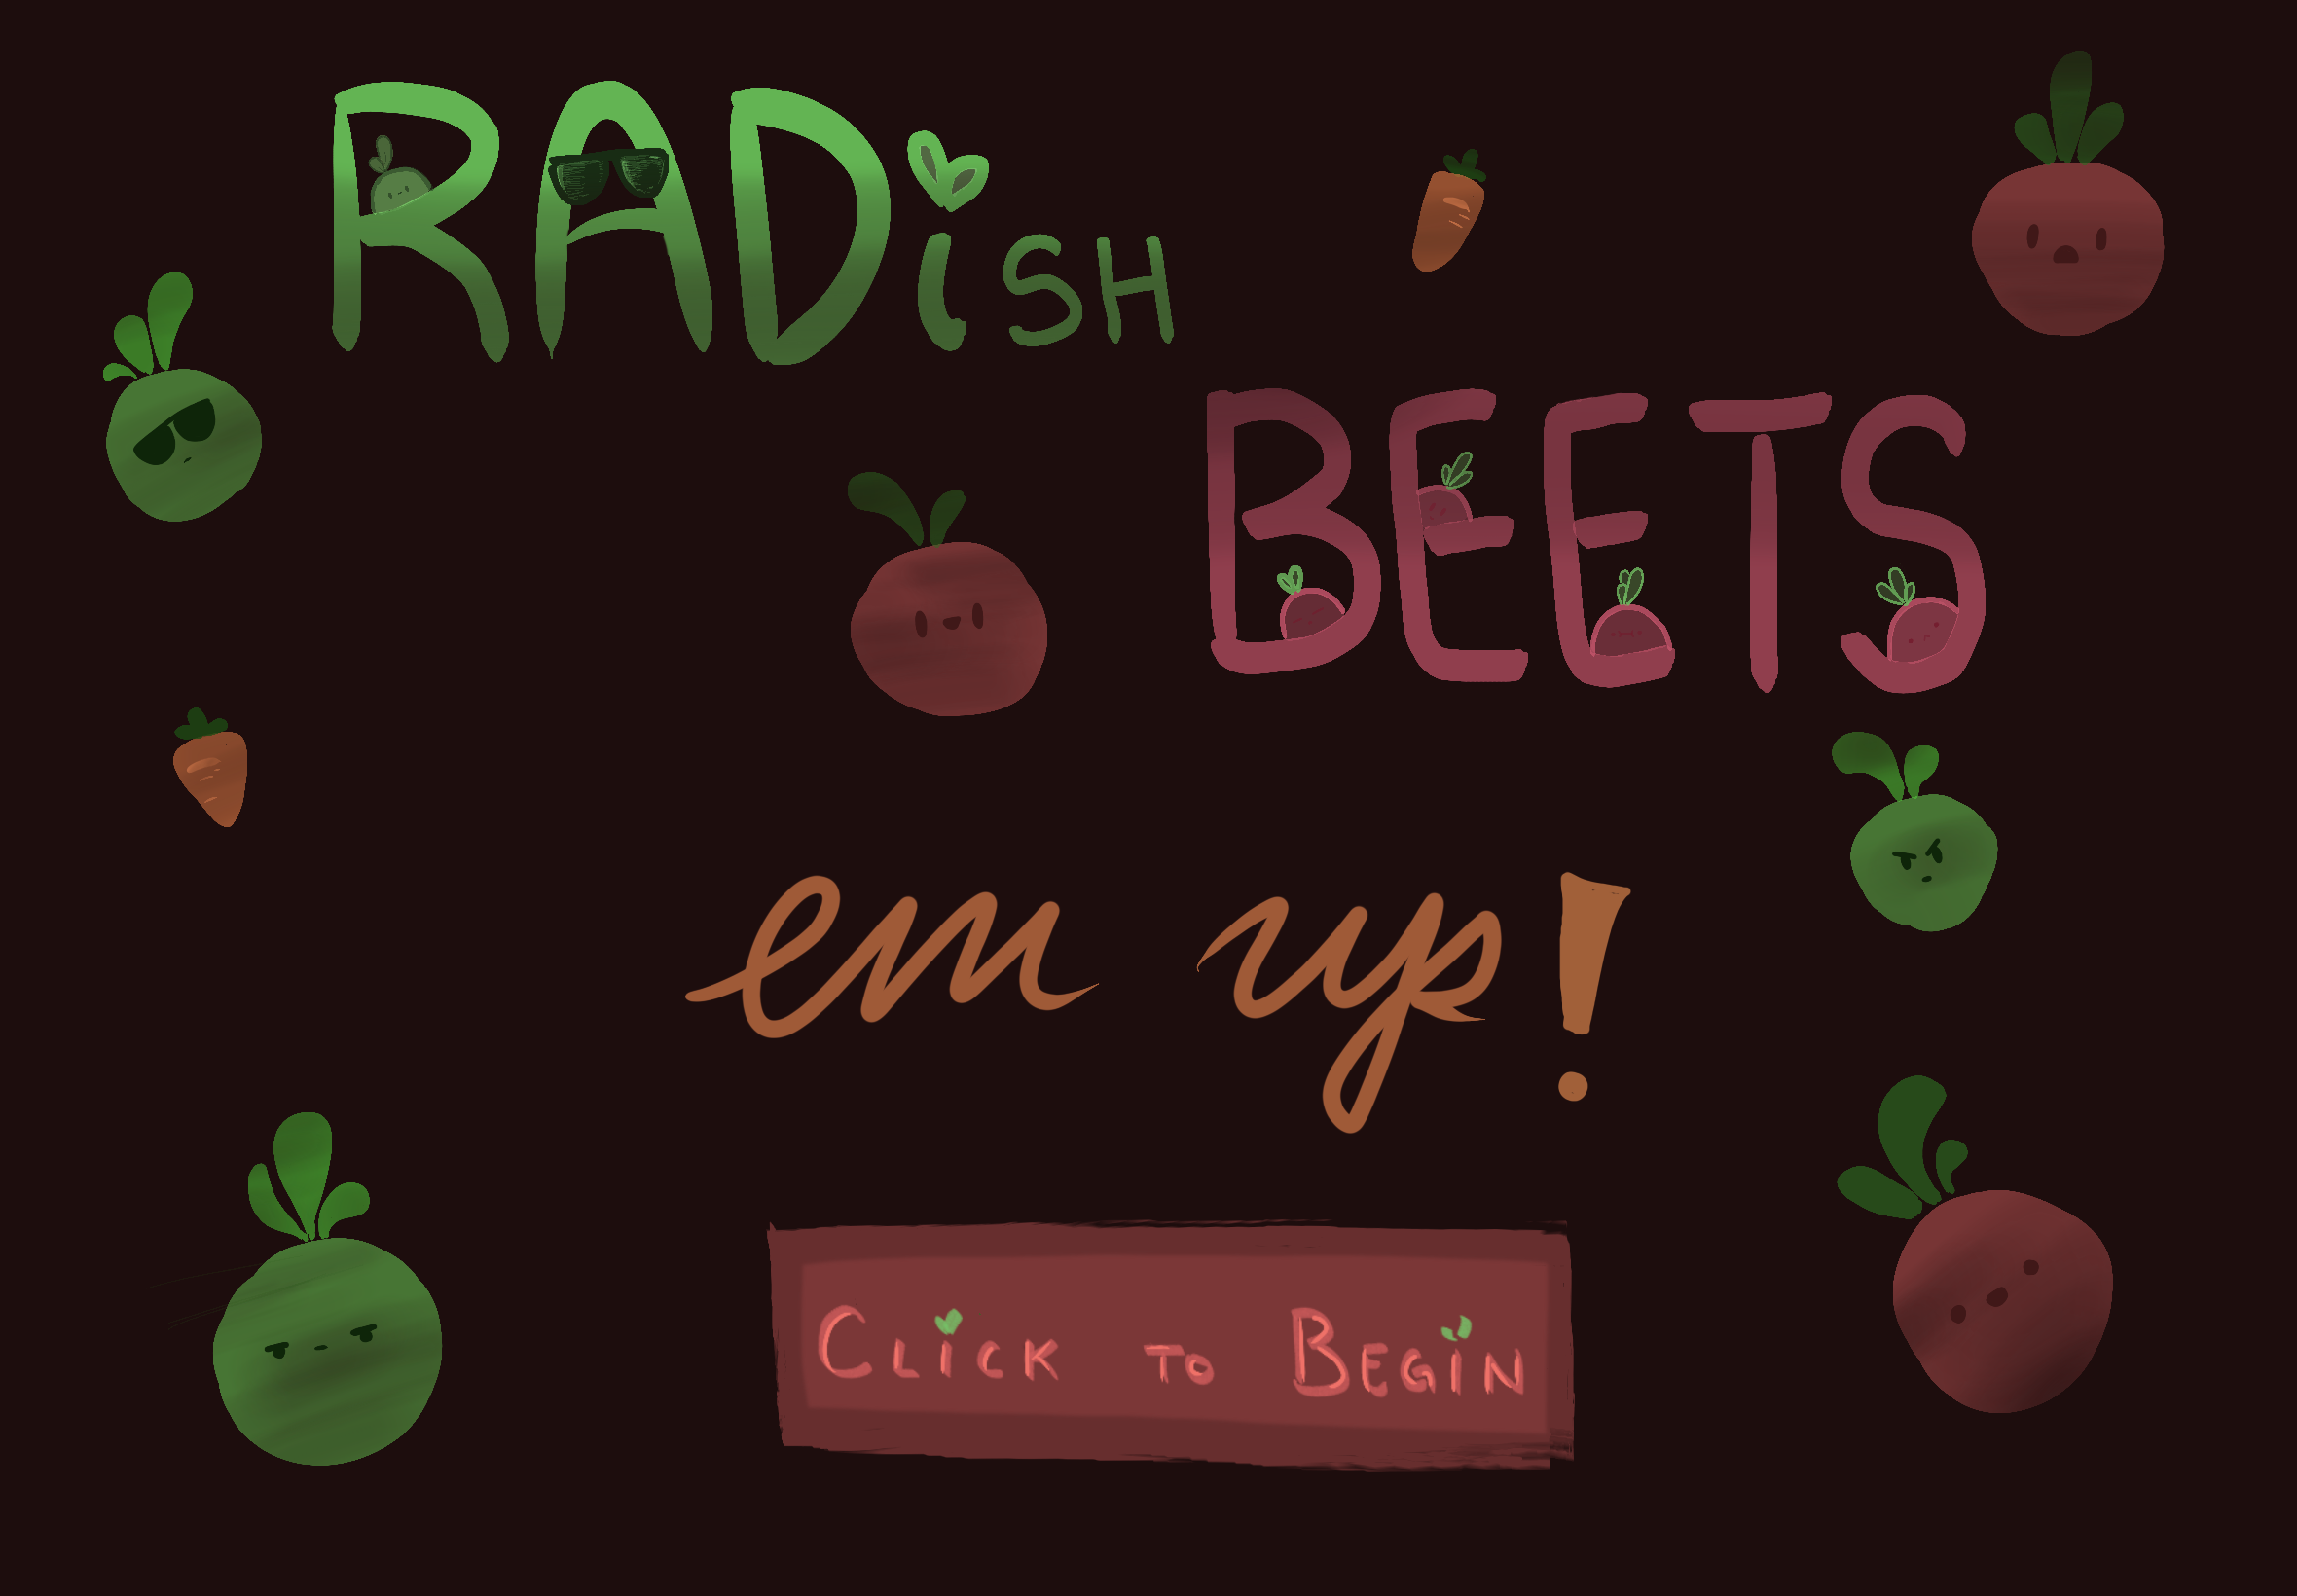 RADiSH
BEETS
em up!
CLiCK TO BEGiN